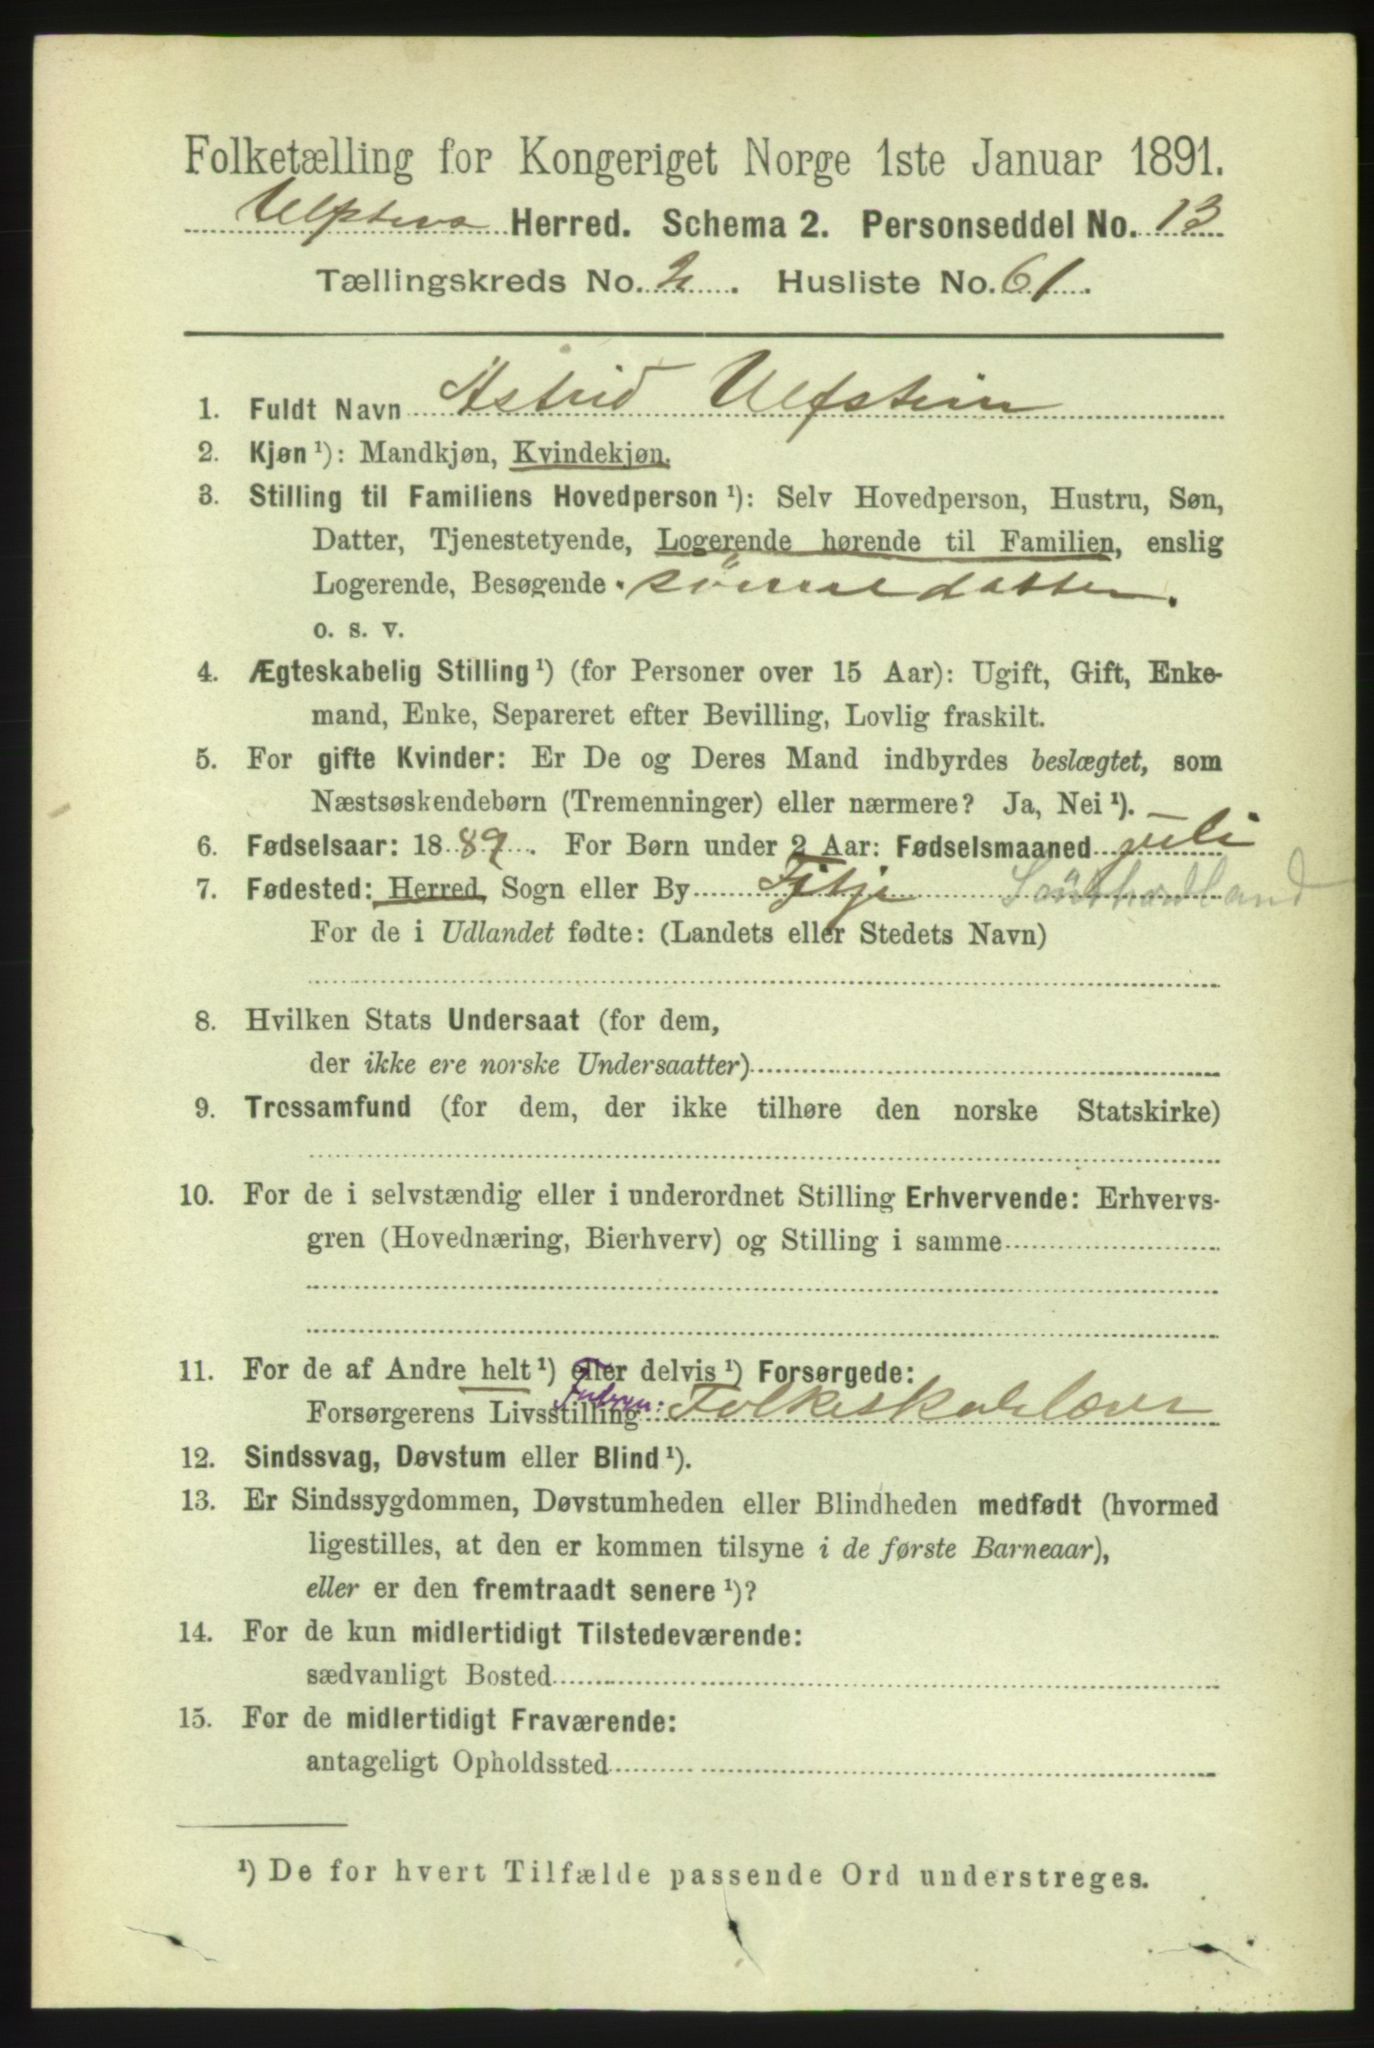 Folketælling for Kongeriget Norge 1ste Januar 1891.
Ulfstens Herred. Schema 2. Personseddel No. 13
Tællingskreds No. 2. Husliste No. 61.
1. Fuldt Navn Astrid Ulfstein
2. Kjøn ¹): Mandkjøn, Kvindekjøn.
3. Stilling til Familiens Hovedperson ¹): Selv Hovedperson, Hustru, Søn,
Datter, Tjenestetyende, Logerende hørende til Familien, enslig
Logerende, Besøgende . sönnedatter.
o. s. v.
4. Ægteskabelig Stilling ¹) (for Personer over 15 Aar): Ugift, Gift, Enke-
mand, Enke, Separeret efter Bevilling, Lovlig fraskilt.
5. For gifte Kvinder: Er De og Deres Mand indbyrdes beslægtet, som
Næstsøskendebørn (Tremenninger) eller nærmere? Ja, Nei ¹).
6. Fødselsaar: 1889. For Børn under 2 Aar: Fødselsmaaned juli
7. Fødested: Herred, Sogn eller By Fitje Söndhordland
For de i Udlandet fødte: (Landets eller Stedets Navn)
8. Hvilken Stats Undersaat (for dem,
der ikke ere norske Undersaatter)
9. Trossamfund (for dem, der ikke tilhøre den norske Statskirke)
10. For de i selvstændig eller i underordnet Stilling Erhvervende: Erhvervs-
gren (Hovednæring, Bierhverv) og Stilling i samme
11. For de af Andre helt ¹) eller delvis ¹) Forsørgede:
Forsørgerens Livsstilling Folkeskolelærer
12. Sindssvag, Døvstum eller Blind ¹).
13. Er Sindssygdommen, Døvstumheden eller Blindheden medfødt (hvormed
ligestilles, at den er kommen tilsyne i de første Barneaar),
eller er den fremtraadt senere ¹)?
14. For de kun midlertidigt Tilstedeværende:
sædvanligt Bosted
15. For de midlertidigt Fraværende:
antageligt Opholdssted
¹) De for hvert Tilfælde passende Ord understreges.